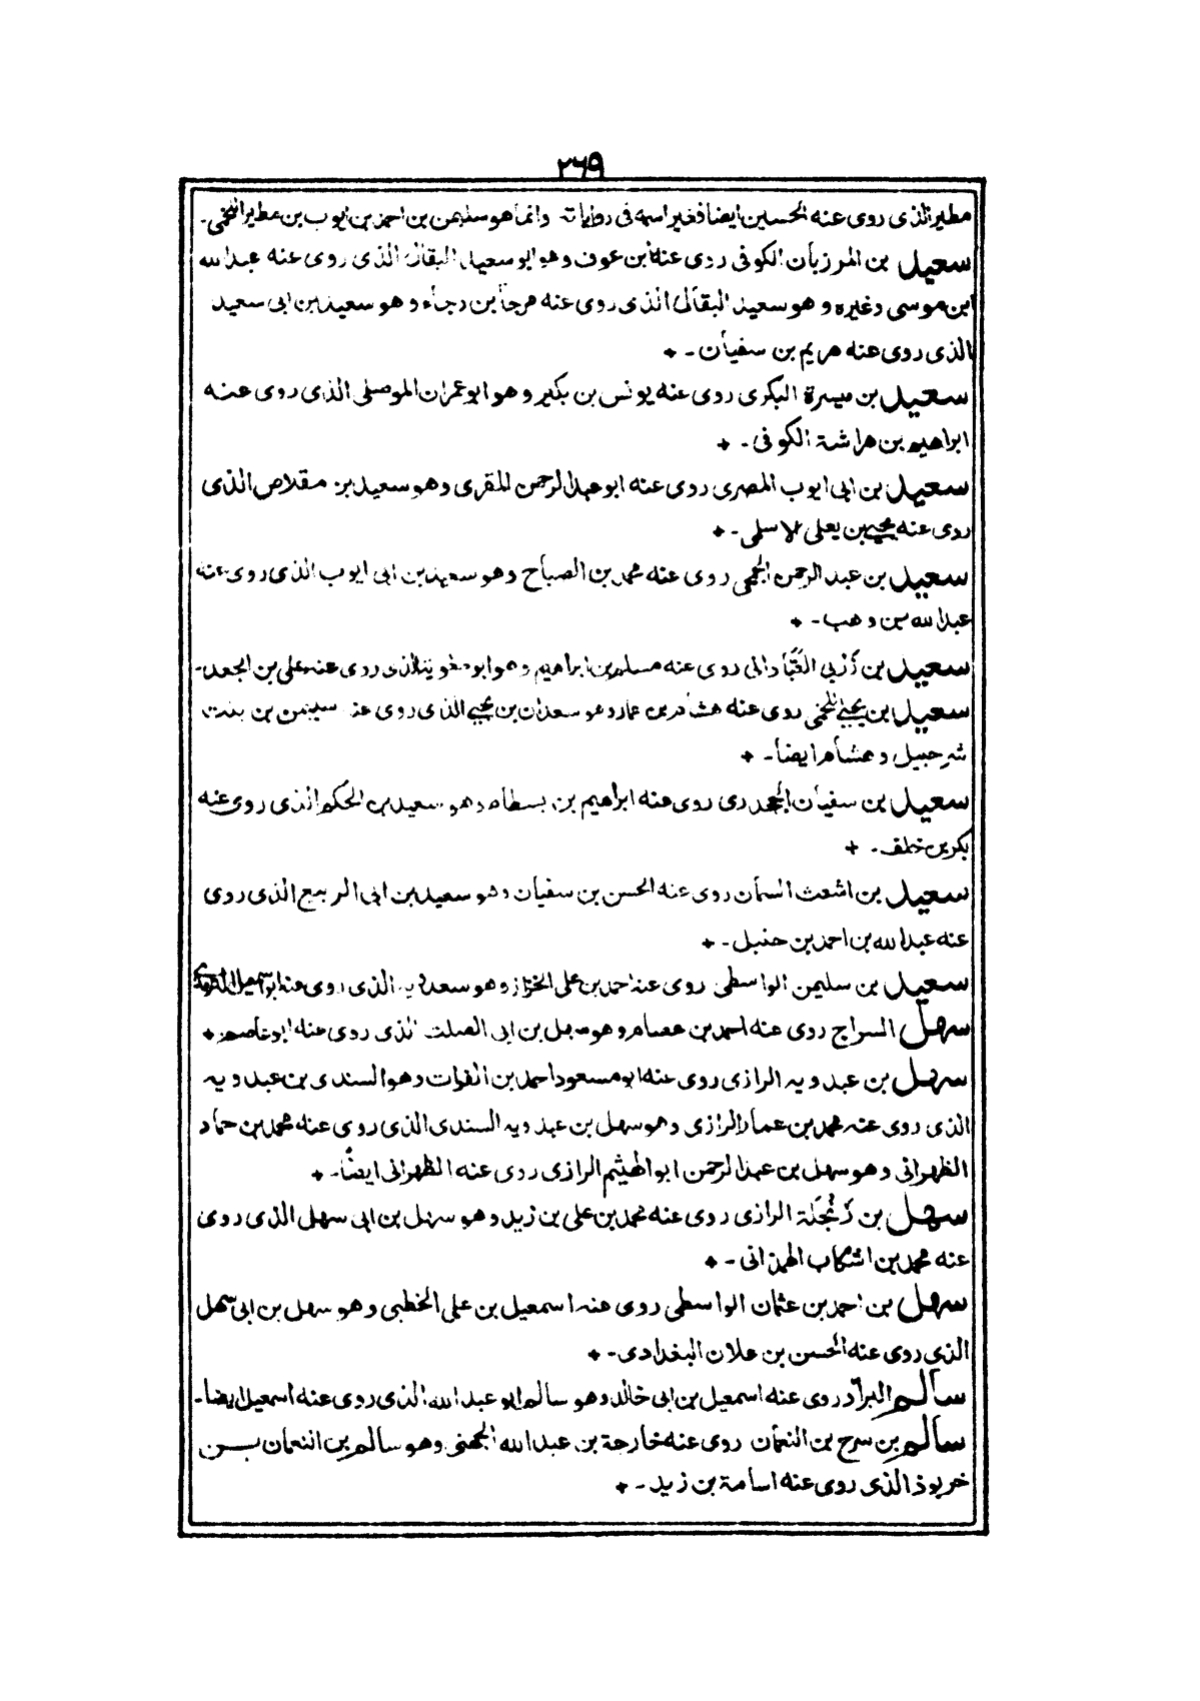 ٣٦٩
مطير الذى روى عنه الحسين ايضا فغير اسمه فى روايات وانما هو سليمن بن احمد بن ايوب بن مطير اللخمى۔
سعيد بن المرزبان الكوفى روى عنه ابن عوف وهو ابو سعيد البقال الذى روى عنه عبد الله
ابن موسى وغيره وهو سعيد البقال الذى روى عنه مرجا بن رجاء وهو سعيد بن ابى سعيد
الذى روى عنه مريم بن سفيان۔
سعيد بن ميسرة البكرى روى عنه يونس بن بكير وهو ابو عمران الموصلى الذى روى عنه
ابراهيم بن هراشة الكوفى۔
سعيد بن ابى ايوب المصرى روى عنه ابو عبد الرحمن المقرى وهو سعيد بن مقلاص الذى
روى عنه يحيى بن يعلى الاسلمى۔
سعيد بن عبد الرحمن الجمحى روى عنه محمد بن الصباح وهو سعيد بن ابى ايوب الذى روى عنه
عبد الله بن وهب۔
سعيد بن زربى روى عنه مسلم بن ابراهيم وهو ابو الذى روى عنه على بن الجعد۔
سعيد بن يحيى اللخمى روى عنه هشام بن عمار وهو سعدان بن يحيى الذى روى عنه سليمن بن بنت
شرحبيل وهشام ايضا۔
سعيد بن سفيان الجحدرى روى عنه ابراهيم بن بسطام وهو سعيد بن الحكم الذى روى عنه
بكر بن خلف۔
سعيد بن اشعث السمان روى عنه الحسن بن سفيان وهو سعيد بن ابى الربيع الذى روى
عنه عبد الله بن احمد بن حنبل۔
سعيد بن سليمن الواسطى روى عنه احمد بن على الخزاز وهو سعدويه الذى روى عنه ابو اسمعيل الترمذى
سهل السراج روى عنه احمد بن عصام وهو سهل بن ابى الصلت الذى روى عنه ابو عاصم
سهل بن عبدويه الرازى روى عنه ابو مسعود احمد بن الفرات وهو السندى بن عبدويه
الذى روى عنه محمد بن عمار الرازى وهو سهل بن عبدويه السندى الذى روى عنه محمد بن حماد
الظهرانى وهو سهل بن عبد الرحمن ابو الهيثم الرازى روى عنه الظهرانى ايضًا۔
سهل بن زَنْجَلَة الرازى روى عنه محمد بن على بن زيد وهو سهل بن ابى سهل الذى روى
عنه محمد بن اشكاب الهمزانى۔
سهل بن احمد بن عثمان الواسطى روى عنه اسمعيل بن على الخطبى وهو سهل بن ابى سهل
الذى روى عنه الحسن بن علان البغدادى۔
سالم البراد روى عنه اسمعيل بن ابى خالد وهو سالم ابو عبد الله الذى روى عنه اسمعيل ايضا۔
سالم بن سرح بن النعمان روى عنه خارجة بن عبد الله الجهنى وهو سالم بن النعمان بن
خربوذ الذى روى عنه اسامة بن زيد۔